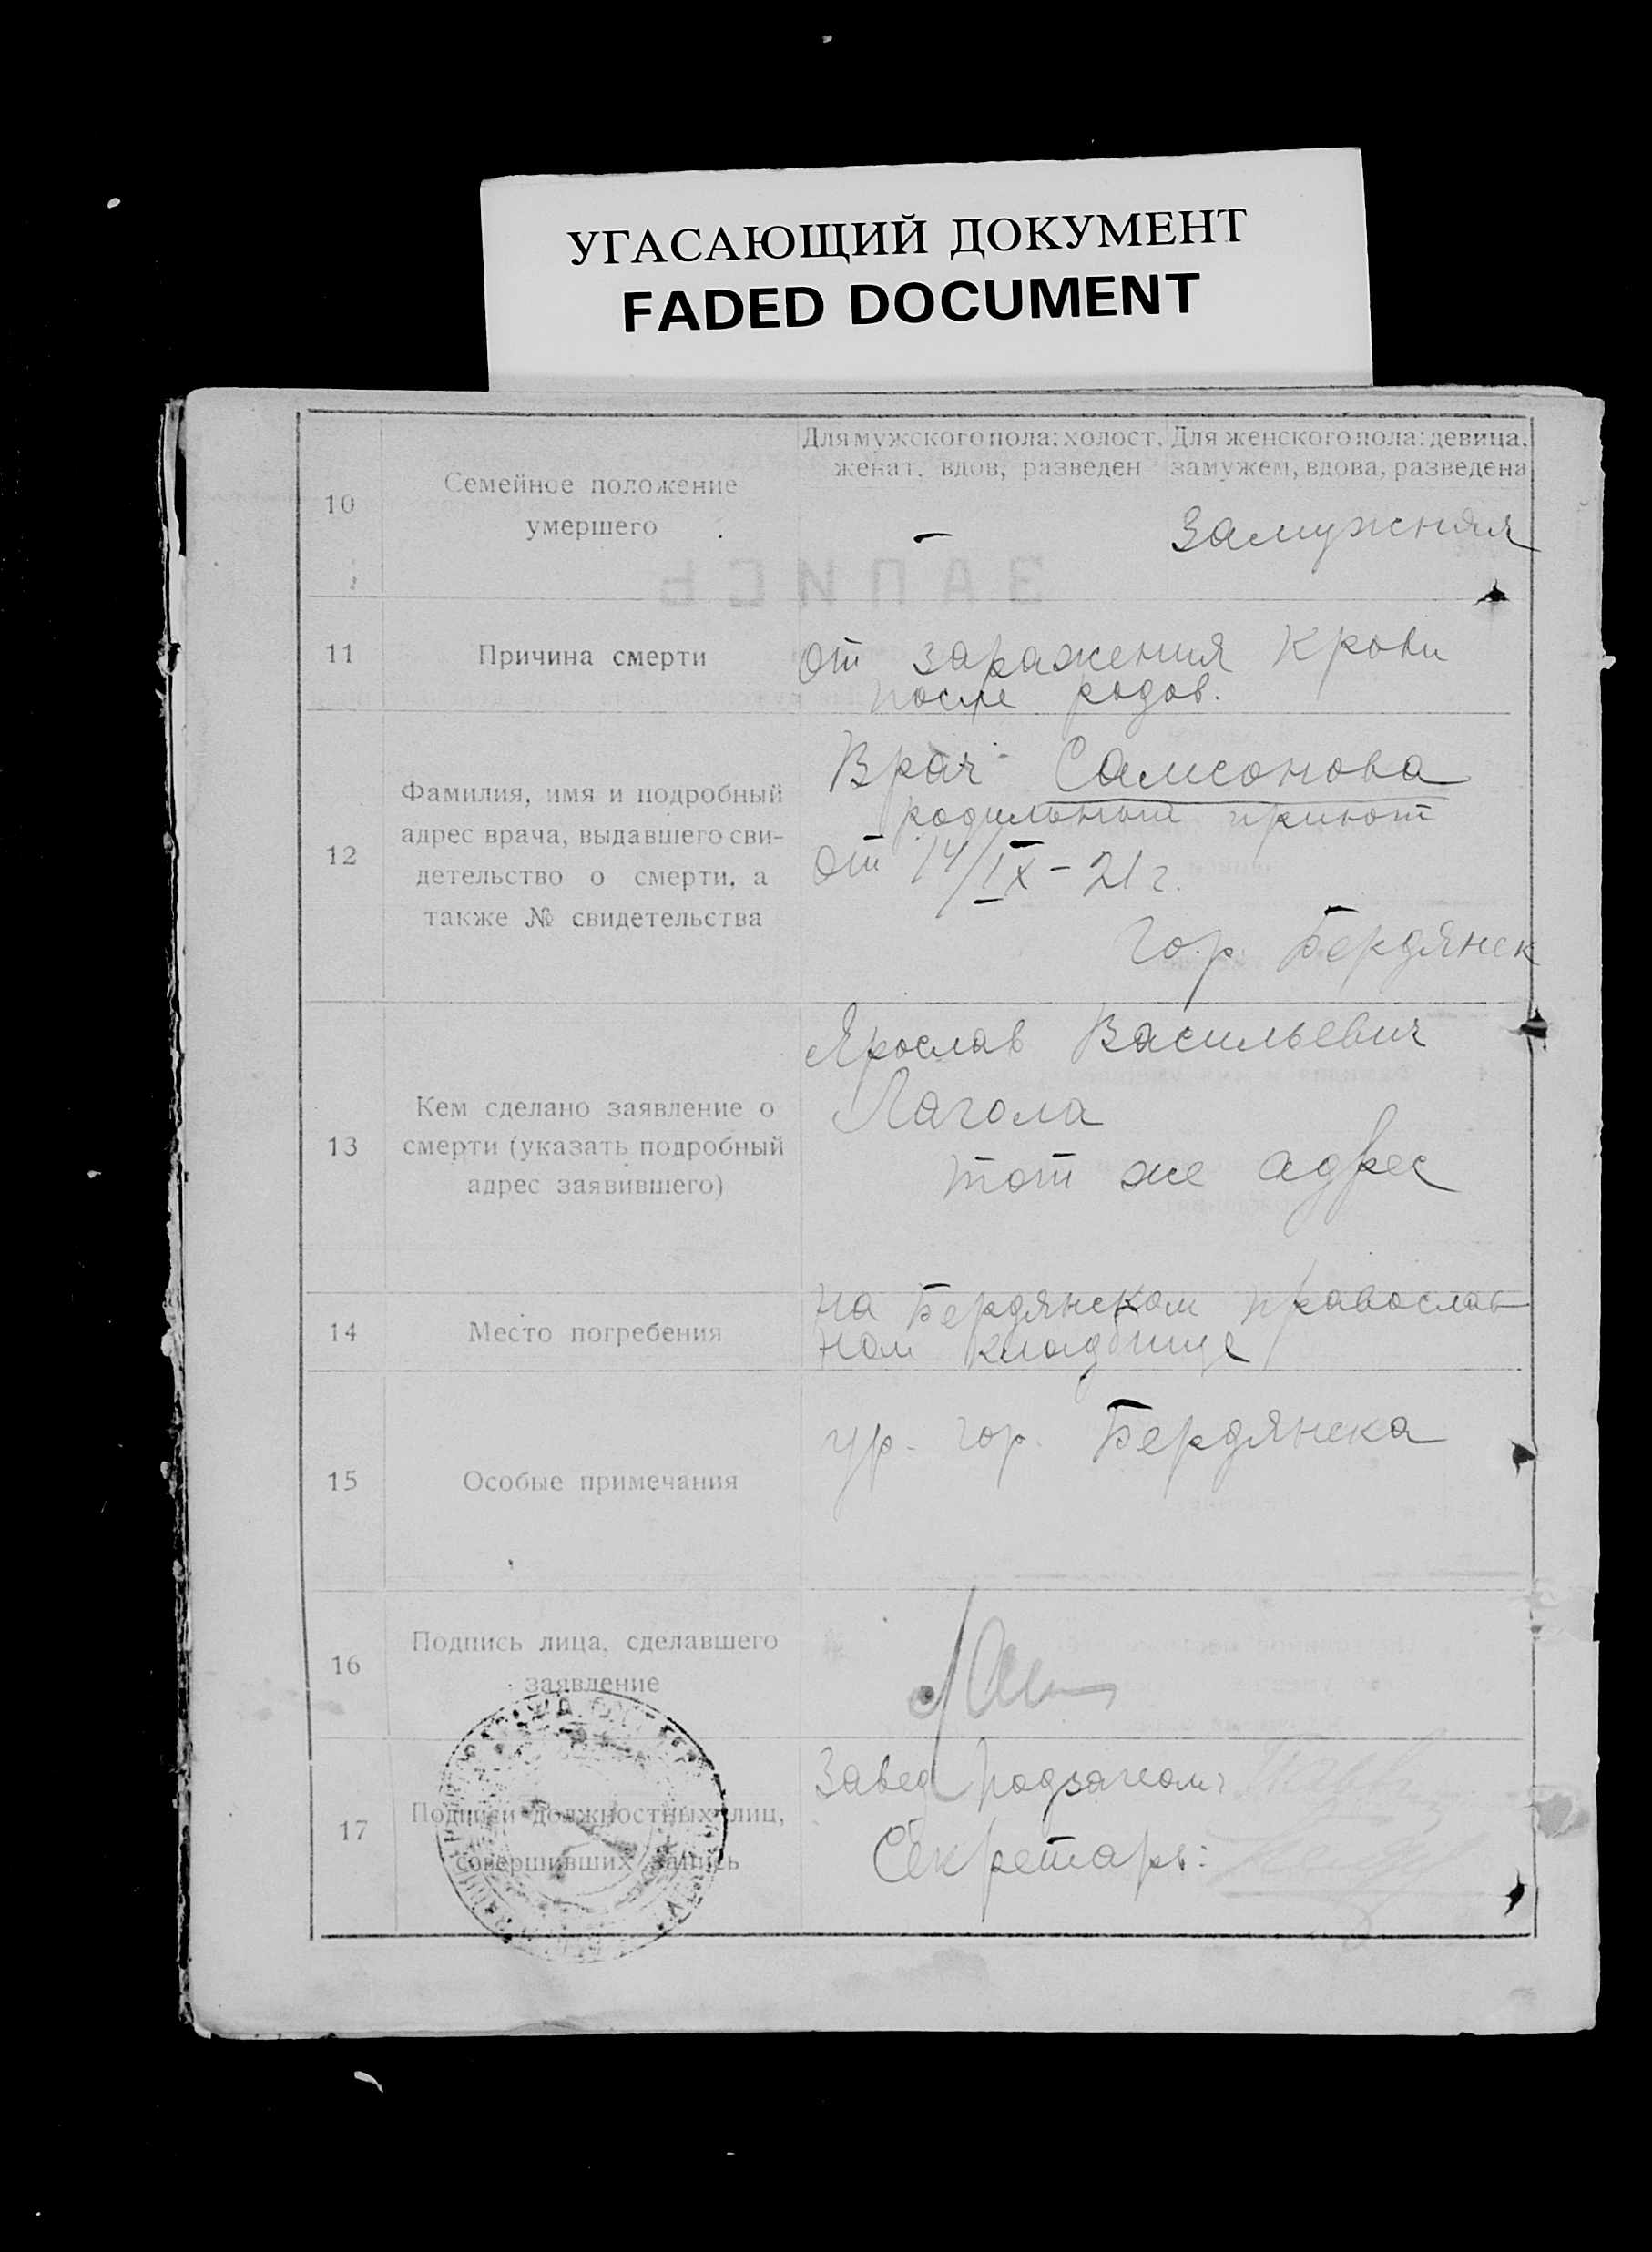 УГАСАЮЩИЙ ДОКУМЕНТ
FADED DOCUMENT
10
Семейное положение
умершего
Для мужского пола: холост,
женат, вдов, разведен
Для женского пола: девица,
замужем, вдова, разведена
–
Замужняя
ЗАПИСЬ
11
Причина смерти
от заражения крови
после родов.
12
Фамилия, имя и подробный
адрес врача, выдавшего сви-
детельство о смерти, а
также № свидетельства
Врач Самсонова
родильный приют
от 14/IX – 21 г.
гор. Бердянск
13
Кем сделано заявление о
смерти (указать подробный
адрес заявившего)
Ярослав Васильевич
Лагола
тот же адрес
14
Место погребения
на Бердянском православ
ном кладбище
15
Особые примечания
ур. гор. Бердянска
16
Подпись лица, сделавшего
заявление
17
Подписи должностных лиц,
совершивших запись
Завед подзагсом:
Секретарь: